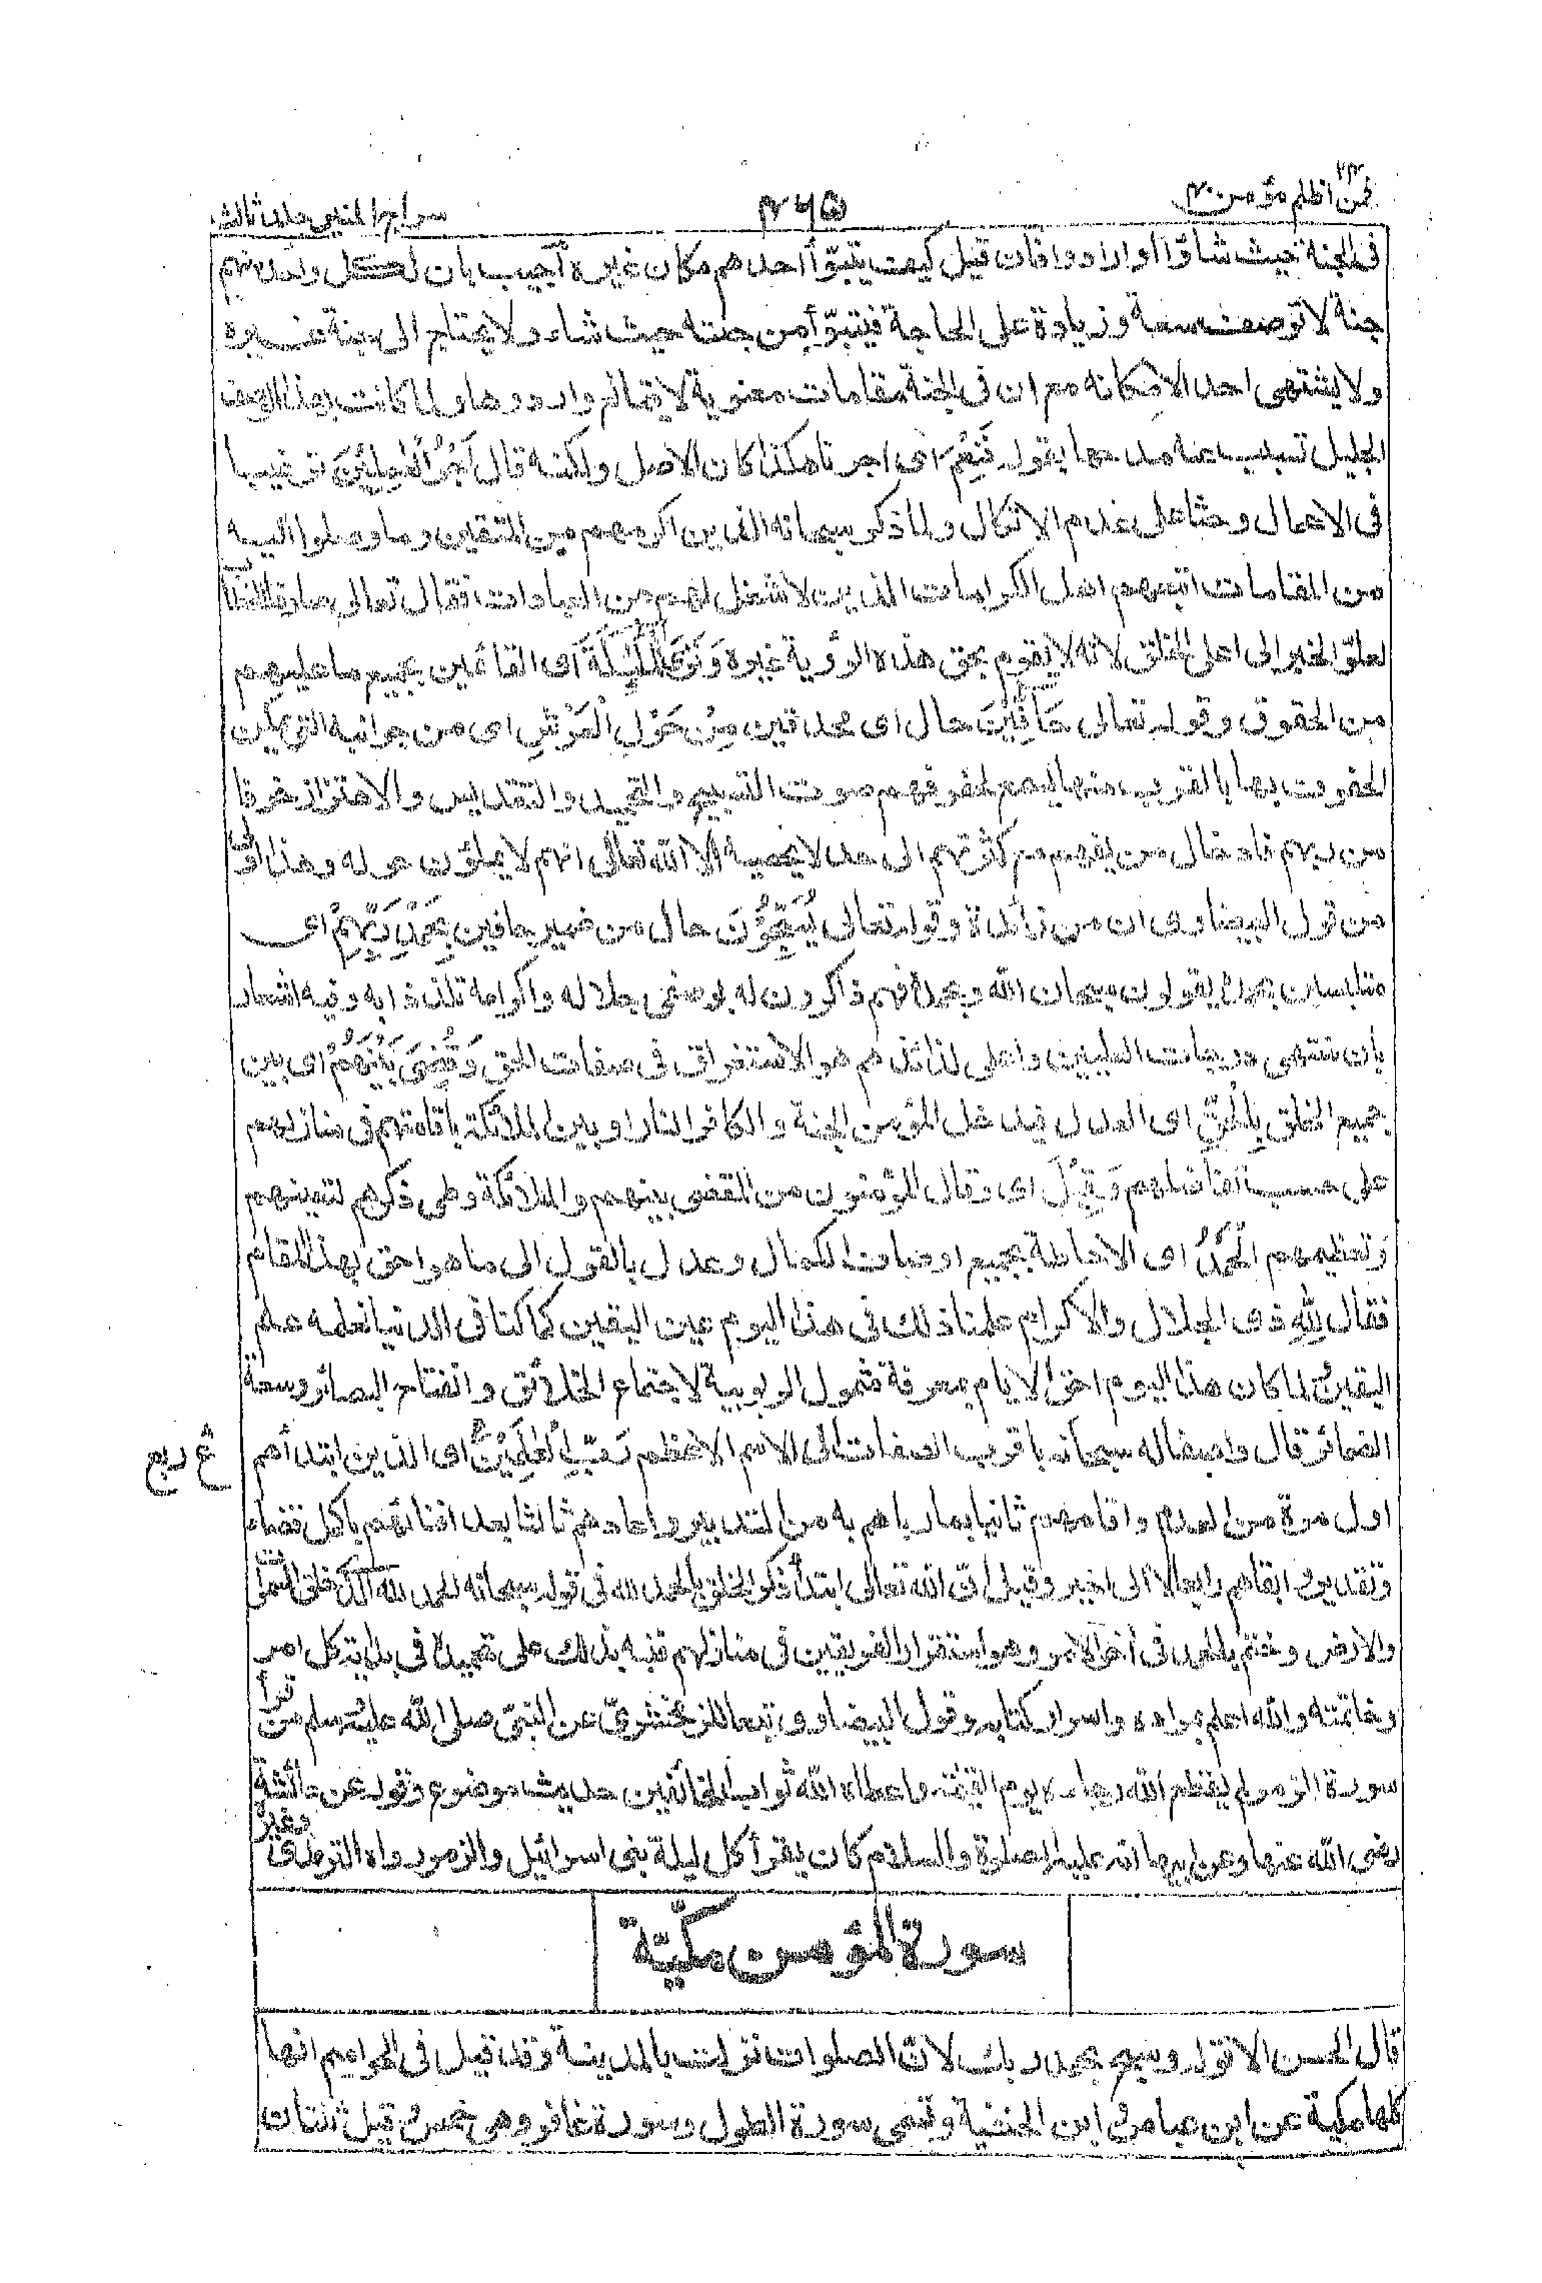 فمن اظلم ٢٤ مؤمن ٤٠
٤٦٥
سراج المنير جلد ثالث
فى الجنة حيث شاؤا اوارادوا فان قيل كيف يتبوّأ احدهم مكان غيره أجيب بان لكل واحد منهم
جنة لا توصف سعة وزيادة على الحاجة فيتبوّأ من جنته حيث شاء ولا يحتاج الى جنة غيره
ولا يشتهى احد الا مكانه مع ان فى الجنة مقامات معنوية لا يتمانع واردوها ولما كانت بهذا الوصف
الجليل تسبب عنه مدحها بقوله فَنِعْمَ اى اجرنا هكذا كان الاصل ولكنه قال اَجْرُ الْعٰمِلِيْنَ ترغيبا
فى الاعمال وحثا على عدم الاتكال ولما ذكر سبحانه الذين اكرمهم من المتقين وما وصلوا اليه
من المقامات اتبعهم اهل الكرامات الذين لا شغل لهم عن العبادات فقال تعالى صارفا الخطاب
لعلوّ الخبر الى اعلى الخلق لانه لا يقوم بحق هذه الرؤية غيره وَتَرَى الْمَلٰٓئِكَةَ اى القائمين بجميع ما عليهم
من الحقوق وقوله تعالى حَآفِّيْنَ حال اى محدقين مِنْ حَوْلِ الْعَرْشِ اى من جوانبه التى يمكن
الحفوف بها بالقرب منها يسمع لحفوفهم صوت التسبيح والتحميد والتقديس والاهتزاز خوفا
من ربهم فادخال من يفهم مع كثرتهم الى حد لا يحصيه الا الله تعالى انهم لا يملؤن حوله وهذا اولى
من قول البيضاوى ان من زائدة وقوله تعالى يُسَبِّحُوْنَ حال من ضمير حافين بِحَمْدِ رَبِّهِمْ اى
متلبسين بحمده يقولون سبحان الله وبحمده فهم ذاكرون له بوصفى جلاله واكرامه تلذذا به وفيه اشعار
بان منتهى درجات العليين واعلى لذائذهم هو الاستغراق فى صفات الحق وَقُضِىَ بَيْنَهُمْ اى بين
جميع الخلق بِالْحَقِّ اى العدل فيدخل المؤمن الجنة والكافر النار او بين الملائكة باقامتهم فى منازلهم
على حسب تفاضلهم وَقِيْلَ اى وقال المؤمنون من المقضى بينهم والملائكة وطى ذكرهم لتعينهم
وتعظيمهم الْحَمْدُ اى الاحاطة بجميع اوصاف الكمال وعدل بالقول الى ما هو احق بهذا المقام
فقال لِلّٰهِ ذى الجلال والاكرام علمنا ذلك فى هذا اليوم عين اليقين كما كنا فى الدنيا نعلمه علم
اليقين ولما كان هذا اليوم احق الايام بمعرفة شمول الربوبية لاجتماع الخلائق وانفتاح البصائر وسعة
الضمائر قال واصفا له سبحانه باقرب الصفات الى الاسم الاعظم رَبِّ الْعٰلَمِيْنَ اى الذين ابتدأهم
ع ربع
اول مرة من العدم واقامهم ثانيا بما رباهم به من التدبير واعادهم ثالثا بعد افنائهم باكمل قضاء
وتقدير وابقاهم رابعا لا الى اخير وقيل ان الله تعالى ابتدأ ذكر الخلق بالحمد لله فى قوله سبحانه الحمد لله الذى خلق السموات
والارض وختم بالحمد فى آخر الامر وهو استقرار الفريقين فى منازلهم فنبه بذلك على تحميده فى بداية كل امر
وخاتمته والله اعلم بمراده واسرار كتابه وقول البيضاوى تبعا للزمخشرى عن النبى صلى الله عليه وسلم من قرأ
سورة الزمر لم يقطع الله رجاءه يوم القيمة واعطاه الله ثواب الخائفين حديث موضوع وقوله عن عائشة
رضى الله عنها وعن ابيها انه عليه الصلوة والسلام كان يقرأ كل ليلة بنى اسرائيل والزمر رواه الترمذى وغيره
سورة المؤمن مكيّة
قال الحسن الا قوله وسبح بحمد ربك لان الصلوات نزلت بالمدينة وقد قيل فى الحواميم انها
كلها مكية عن ابن عباس وابن الحنفية وتسمى سورة الطول وسورة غافر وهى خمس وقيل ثنتان